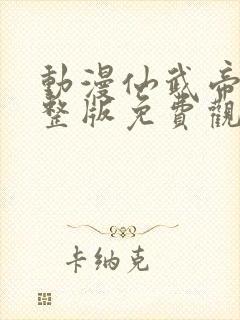 動漫仙武帝
整版免費觀
卡納克